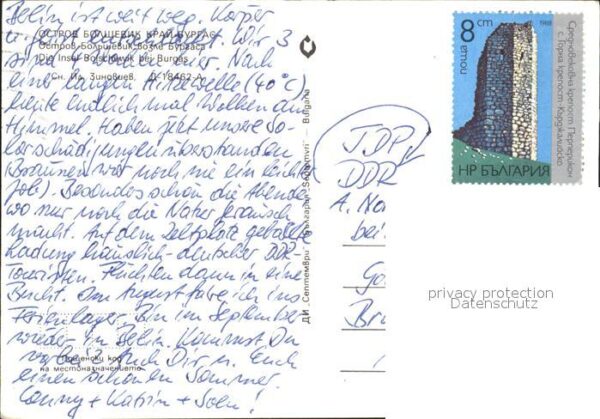 Berlin ist weit weg. Körper
ОСТРОВ БОЛШЕВИК КРАЙ БУРГАС
Остров Болшевик возле Бургаса
Die Insel Bolschewik bei Burgas
Сн. Ил. Зиновиев. Д-18462-А
Wir 3
sind hier. Nach
einer langen Hitzewelle (40°C)
heute endlich mal Wolken am
Himmel. Haben jetzt unsere So-
larschädigungen überstanden
(Braunen war noch nie ein leichter
Job). Besonders schön die Abende
wo nur noch die Natur Geräusch
macht. Auf dem Zeltplatz geballte
Ladung häuslich-deutscher DDR-
Touristen. Flüchten dann in eine
Bucht. Im August fahre ich ins
Ferienlager. Bin im September
wieder in Berlin. Kommst Du
vorbei? Auch Dir u. Euch
einen schönen Sommer.
Conny + Katrin + Sven!
Пощенски код
на местоназначението
ДИ „Септември" България „Septemvri" — Bulgaria
поща 8 cm 1988
НР БЪЛГАРИЯ
Средновековна крепост Перперикон
с. Горна крепост Кърджалийско
JDPV
DDR
A. No
bei
Go
Br
privacy protection
Datenschutz